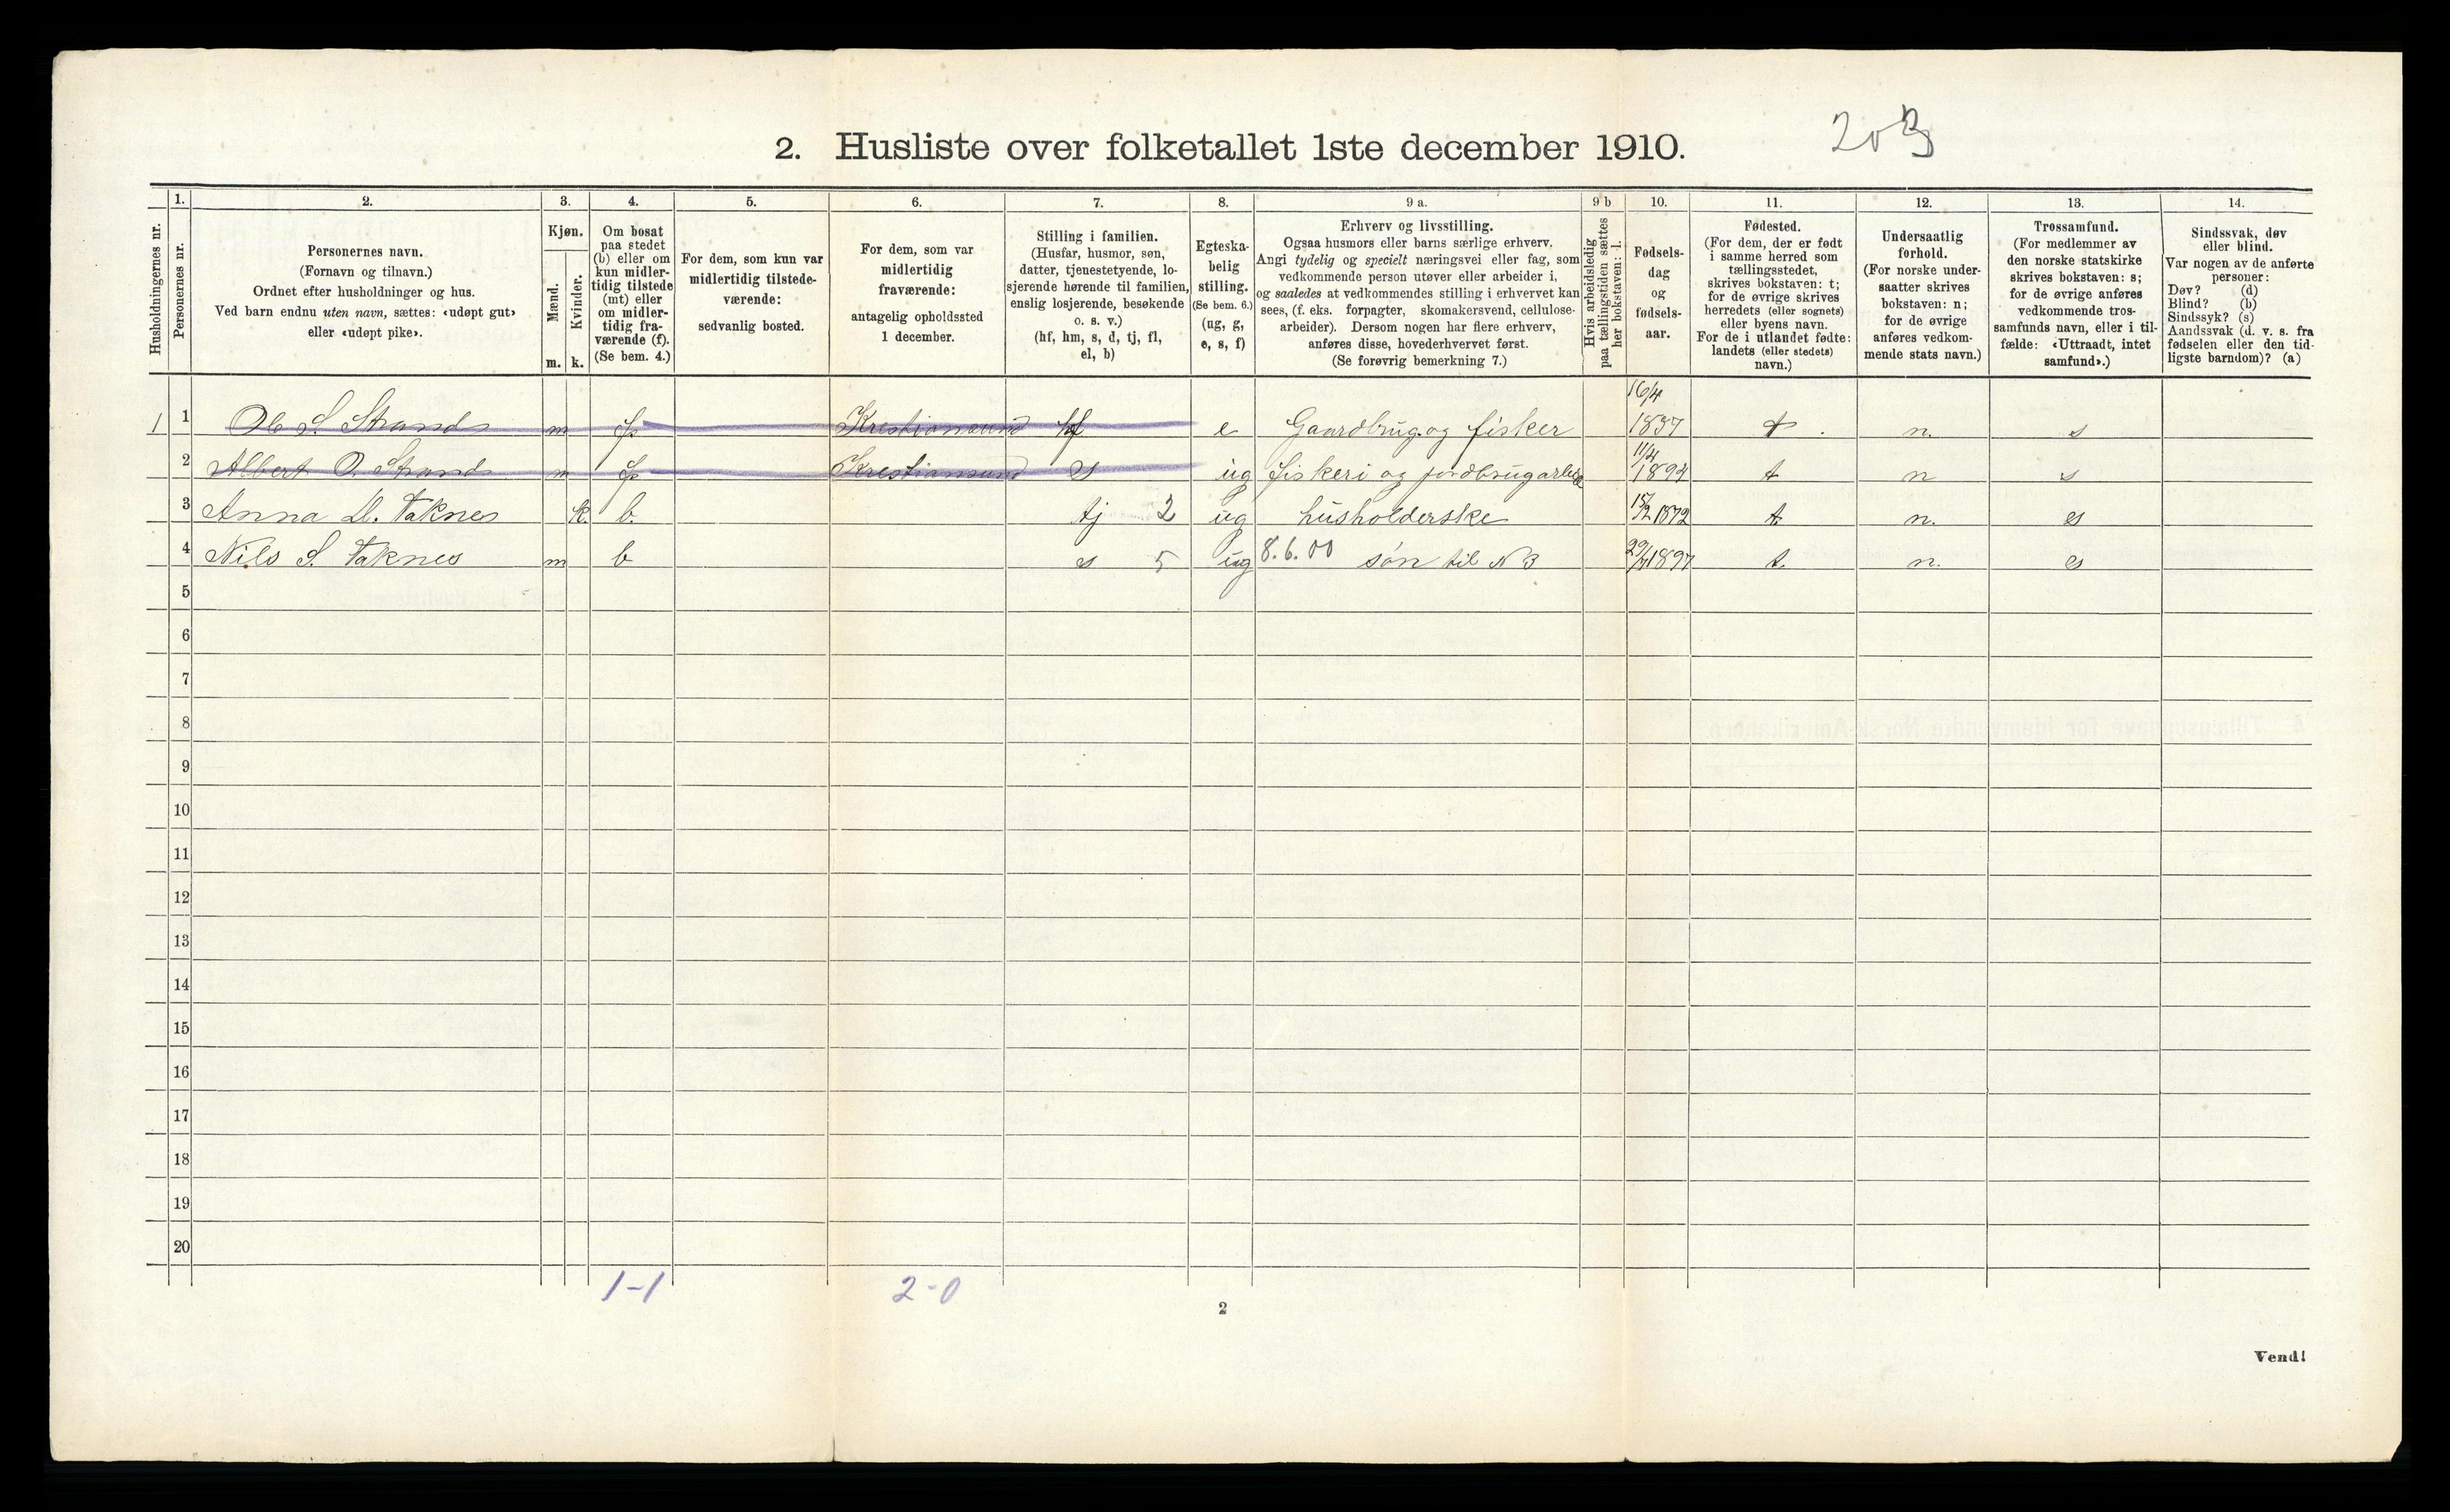 2. Husliste over folketallet 1ste december 1910.
203
Husholdningernes nr.
1.
Personernes nr.
2.
Personernes navn.
(Fornavn og tilnavn.)
Ordnet efter husholdninger og hus.
Ved barn endnu uten navn, sættes: «udøpt gut»
eller «udøpt pike».
3.
Kjøn.
Mænd.
Kvinder.
m. k.
4.
Om bosat
paa stedet
(b) eller om
kun midler-
tidig tilstede
(mt) eller
om midler-
tidig fra-
værende (f).
(Se bem. 4.)
5.
For dem, som kun var
midlertidig tilstede-
værende:
sedvanlig bosted.
6.
For dem, som var
midlertidig
fraværende:
antagelig opholdssted
1 december.
7.
Stilling i familien.
(Husfar, husmor, søn,
datter, tjenestetyende, lo-
sjerende hørende til familien,
enslig losjerende, besøkende
o. s. v.)
(hf, hm, s, d, tj, fl,
el, b)
8.
Egteska-
belig
stilling.
(Se bem. 6.)
(ug, g,
e, s, f)
9 a.
Erhverv og livsstilling.
Ogsaa husmors eller barns særlige erhverv.
Angi tydelig og specielt næringsvei eller fag, som
vedkommende person utøver eller arbeider i,
og saaledes at vedkommendes stilling i erhvervet kan
sees, (f. eks. forpagter, skomakersvend, cellulose-
arbeider). Dersom nogen har flere erhverv,
anføres disse, hovederhvervet først.
(Se forøvrig bemerkning 7.)
9 b
Hvis arbeidsledig
paa tællingstiden sættes
her bokstaven: l.
10.
Fødsels-
dag
og
fødsels-
aar.
11.
Fødested.
(For dem, der er født
i samme herred som
tællingsstedet,
skrives bokstaven: t;
for de øvrige skrives
herredets (eller sognets)
eller byens navn.
For de i utlandet fødte:
landets (eller stedets)
navn.)
12.
Undersaatlig
forhold.
(For norske under-
saatter skrives
bokstaven: n;
for de øvrige
anføres vedkom-
mende stats navn.)
13.
Trossamfund.
(For medlemmer av
den norske statskirke
skrives bokstaven: s;
for de øvrige anføres
vedkommende tros-
samfunds navn, eller i til-
fælde: «Uttraadt, intet
samfund».)
14.
Sindssvak, døv
eller blind.
Var nogen av de anførte
personer:
Døv? (d)
Blind? (b)
Sindssyk? (s)
Aandssvak (d. v. s. fra
fødselen eller den tid-
ligste barndom)? (a)
1 1 Ole S. Strand m f Krestiansund hf e Gaardbrug og fisker 16/4 1837 t. n. s
2 Albert O. Strand m f Krestiansund s ug fiskeri og jordbrugarbeide 11/4 1894 t n s
3 Anna M. Vaknes k. b. tj 2 ug husholderske 15/2 1872 t. n. s
4 Nils S. Vaknes m b s 5 ug 8.6.00 søn til N 3 1897 t. n. s
5
6
7
8
9
10
11
12
13
14
15
16
17
18
19
20
1-1 2-0
2
Vend!